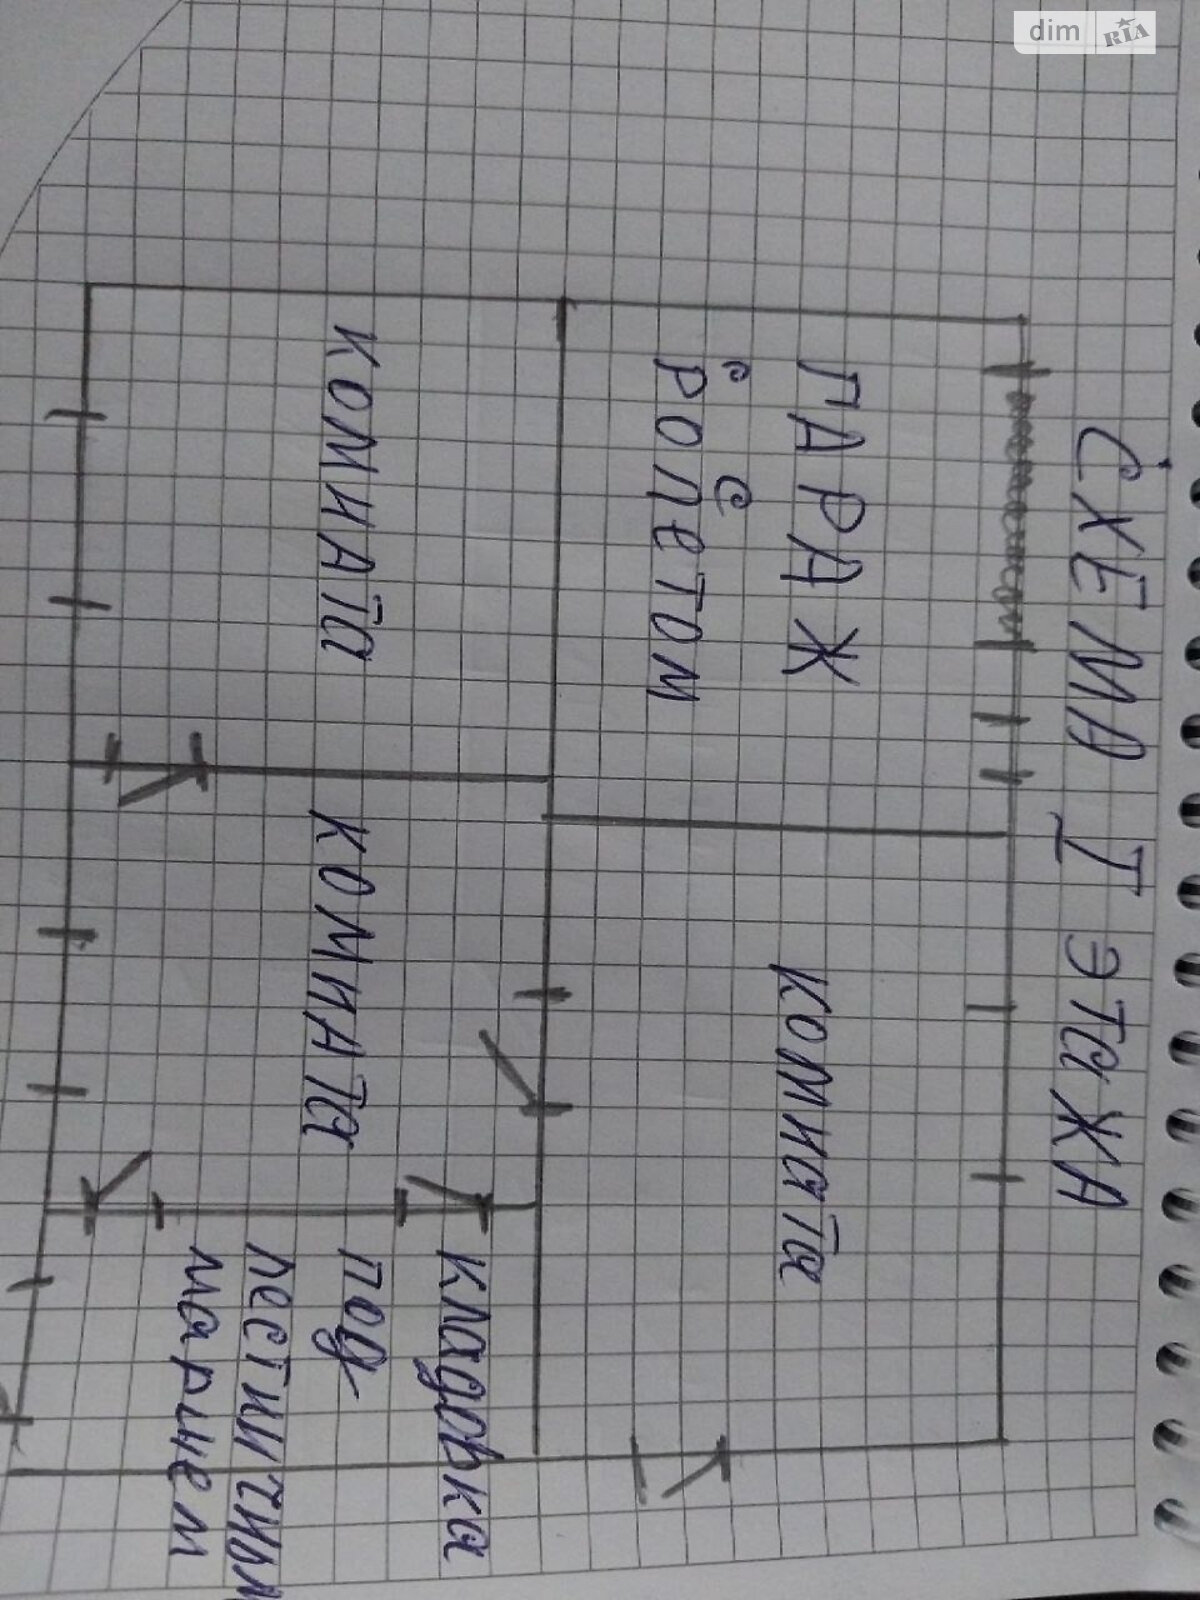 dim RIA
СХЕМА I ЭТаЖА
ГАРАЖ
с
РОЛеТОМ
КОМНаТа
КОМНАТа
КОМНАТа
КЛадОВКа
под
лестничным
маршем